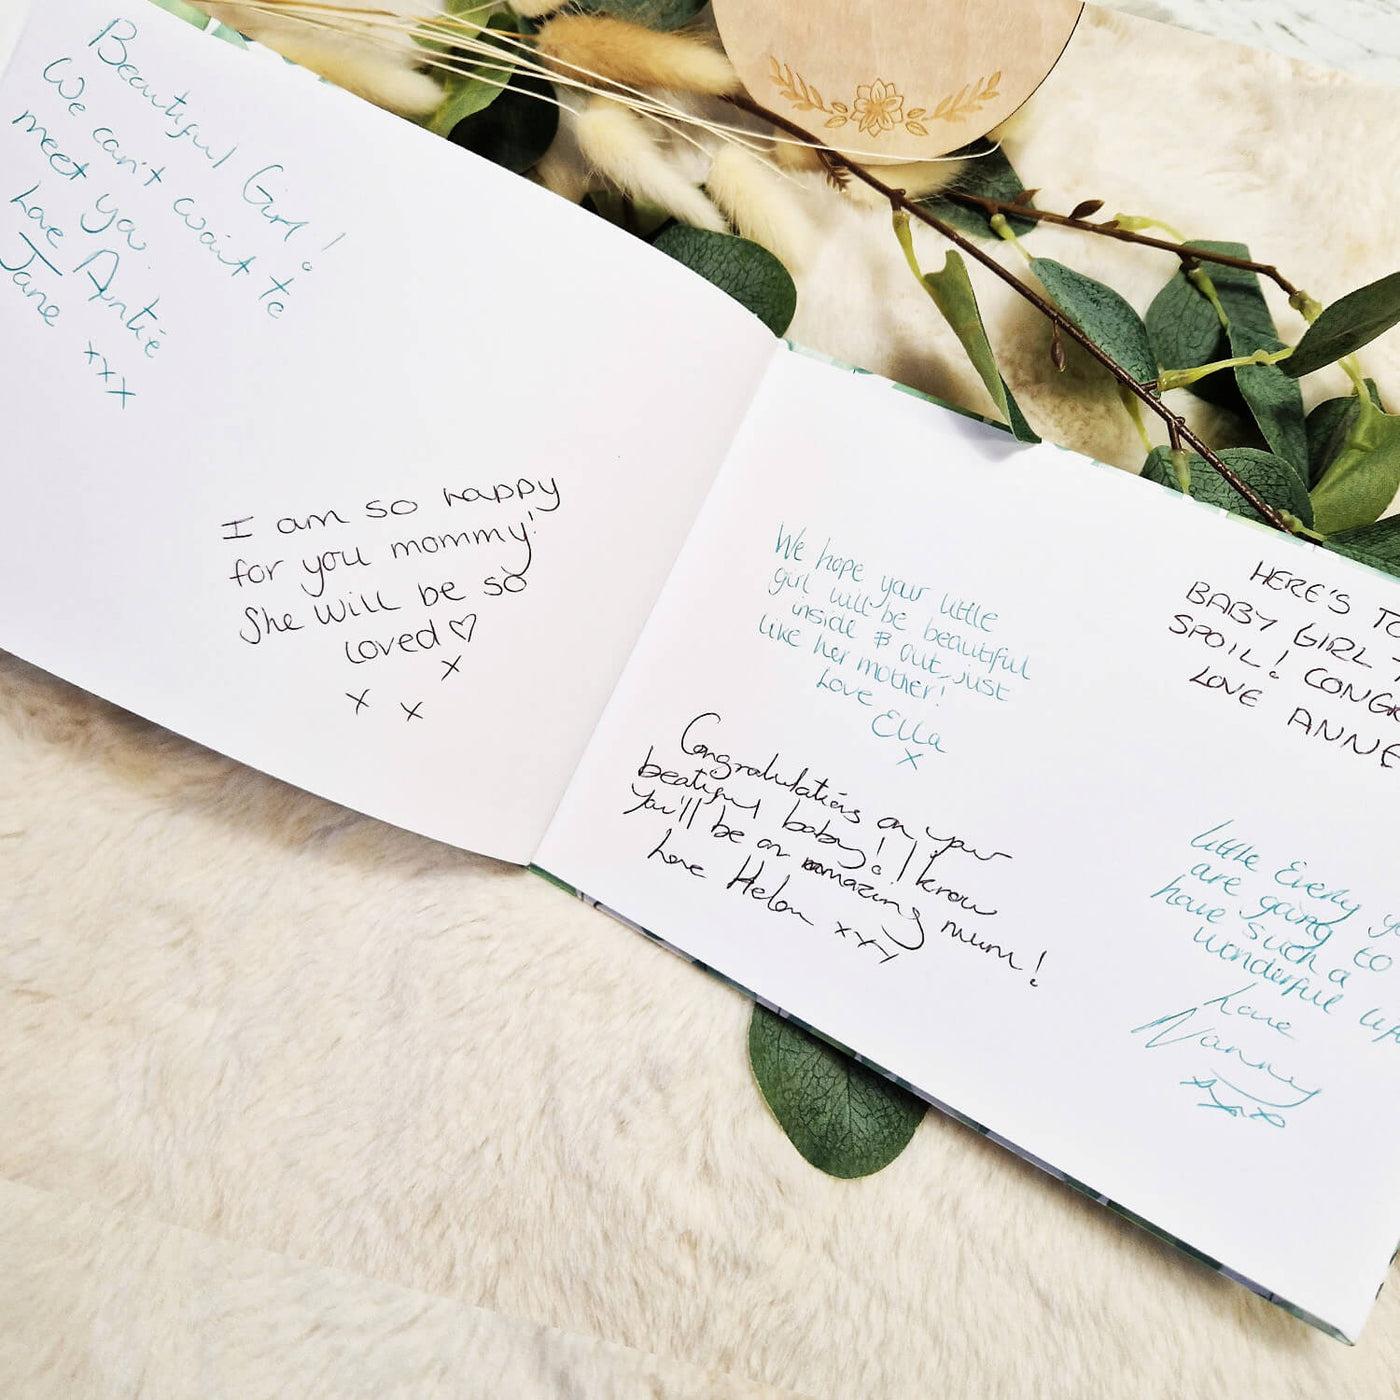 Beautiful Girl!
We can't wait to
meet you
Love Auntie
Jane xxx
I am so happy
for you mommy!
She will be so
loved♡
x
x x
We hope your little
girl will be beautiful
inside & out, just
like her mother!
Love Ella
x
Congratulations on your
beatiful baby! I know
you'll be an amazing mum!
Love Helen xxx
HERE'S TO
BABY GIRL
SPOIL! CONGR
LOVE ANNE
Little Everly
are going to
have such a
wonderful
Love
Nanny
xxxo